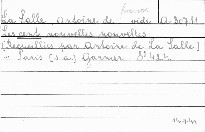 La Salle, Antoine de vide A-30711
Les cent nouvelles nouvelles
[Recueillies par Antoine de La Salle]
- Paris (s.a.) Garnier 8°